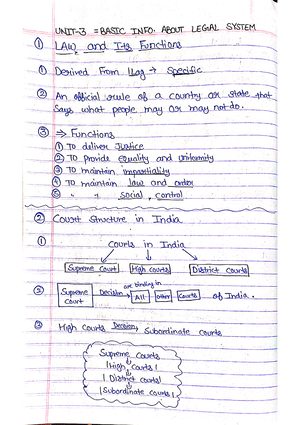 UNIT-3 = BASIC INFO. ABOUT LEGAL SYSTEM
① LAW and Its Functions
① Derived From Lag → Specific
② An official rule of a country or state that
says what people may or may not do.
③ ⇒ Functions
① To deliver Justice
② To provide equality and uniformity
③ To maintain impartiality
④ To maintain law and order
⑤ " " social control
② Court Structure in India
① Courts in India
Supreme Court High Courts District Courts
② Supreme Court Decision are binding in All other Courts of India.
③ High Courts Decision, Subordinate Courts
Supreme Courts
↓
| High Courts |
↓
| District Courts |
↓
| Subordinate Courts |